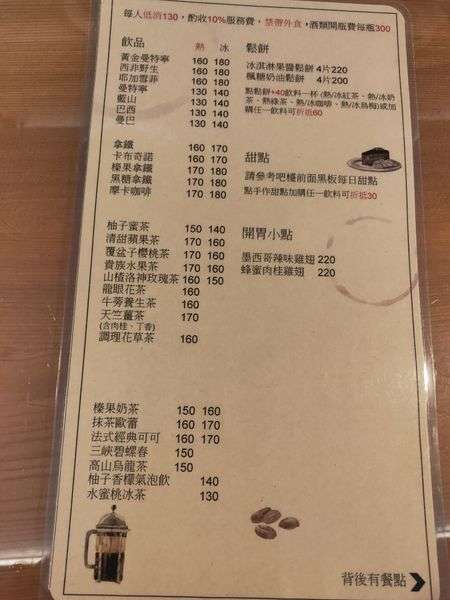 每人低消130，酌收10%服務費，禁帶外食，酒類開瓶費每瓶300
飲品 熱 冰
黃金曼特寧 160 180
西非野生 160 180
耶加雪菲 160 180
曼特寧 130 140
藍山 130 140
巴西 130 140
曼巴 130 140
拿鐵 160 170
卡布奇諾 160 170
榛果拿鐵 170 180
黑糖拿鐵 170 180
摩卡咖啡 170 180
柚子蜜茶 150 140
清甜蘋果茶 170 160
覆盆子櫻桃茶 170 160
貴族水果茶 170 160
山楂洛神玫瑰茶 160 150
龍眼花茶 160
牛蒡養生茶 160
天竺薑茶 170
(含肉桂、丁香)
調理花草茶 160
榛果奶茶 150 160
抹茶歐蕾 160 170
法式經典可可 160 170
三峽碧螺春 150
高山烏龍茶 150
柚子香檬氣泡飲 140
水蜜桃冰茶 130
鬆餅
冰淇淋果醬鬆餅 4片220
楓糖奶油鬆餅 4片200
點鬆餅+40飲料一杯 (熱/冰紅茶、熱/冰奶
茶、熱綠茶、熱/冰咖啡、熱/冰烏梅)或加
購任一飲料可折抵60
甜點
請參考吧檯前面黑板每日甜點
點手作甜點加購任一飲料可折抵30
開胃小點
墨西哥辣味雞翅 220
蜂蜜肉桂雞翅 220
背後有餐點